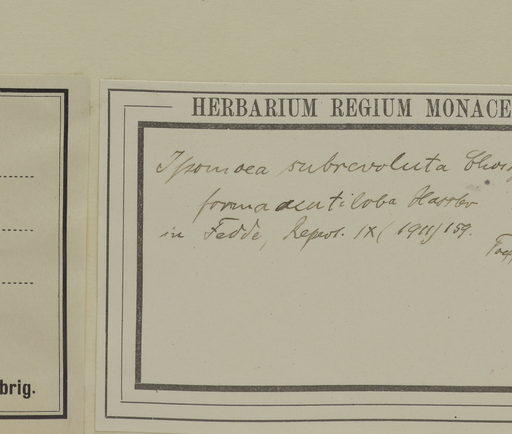 HERBARIUM REGIUM MONACE
Ipomoea subrevoluta Chois
forma acutiloba Hassler
in Fedde, Repert. IX (1911) 159.
brig.